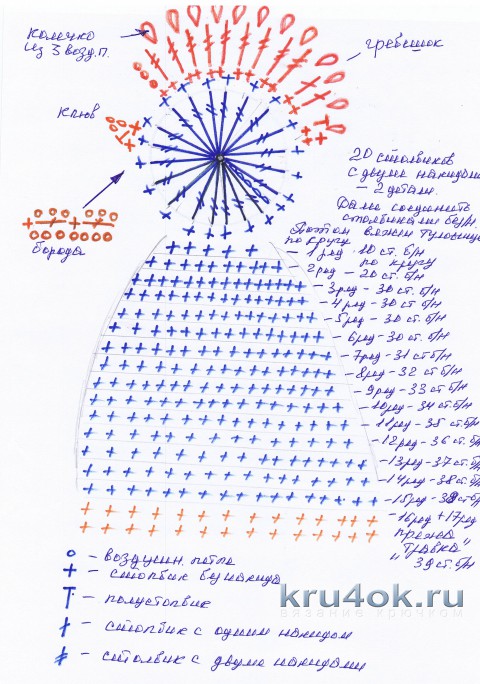 Колечко
из 3 возд. п.
гребешок
Клюв
борода
20 столбиков
с двумя накидами
- 2 детали.
Дале соединить
столбиками без/н.
Потом вяжем туловище
по кругу
1 ряд - 10 ст. б/н
по кругу
2 ряд - 20 ст. б/н
- 3 ряд - 30 ст. б/н
- 4 ряд - 30 ст. б/н
- 5 ряд - 30 ст. б/н
6 ряд - 30 ст. б/н
- 7 ряд - 31 ст б/н
- 8 ряд - 32 ст. б/н
- 9 ряд - 33 ст б/н
- 10 ряд - 34 ст. б/н
- 11 ряд - 35 ст б/н
- 12 ряд - 36 ст. б/н
- 13 ряд - 37 ст. б/н
- 14 ряд - 38 ст. б/н
- 15 ряд - 39 ст. б/н
- 16 ряд + 17 ряд
пряжа
"Травка"
39 ст. б/н
- воздушн. петля
- столбик без накида
- полустолбик
- столбик с одним накидом
- столбик с двумя накидами
kru4ok.ru
вязание крючком